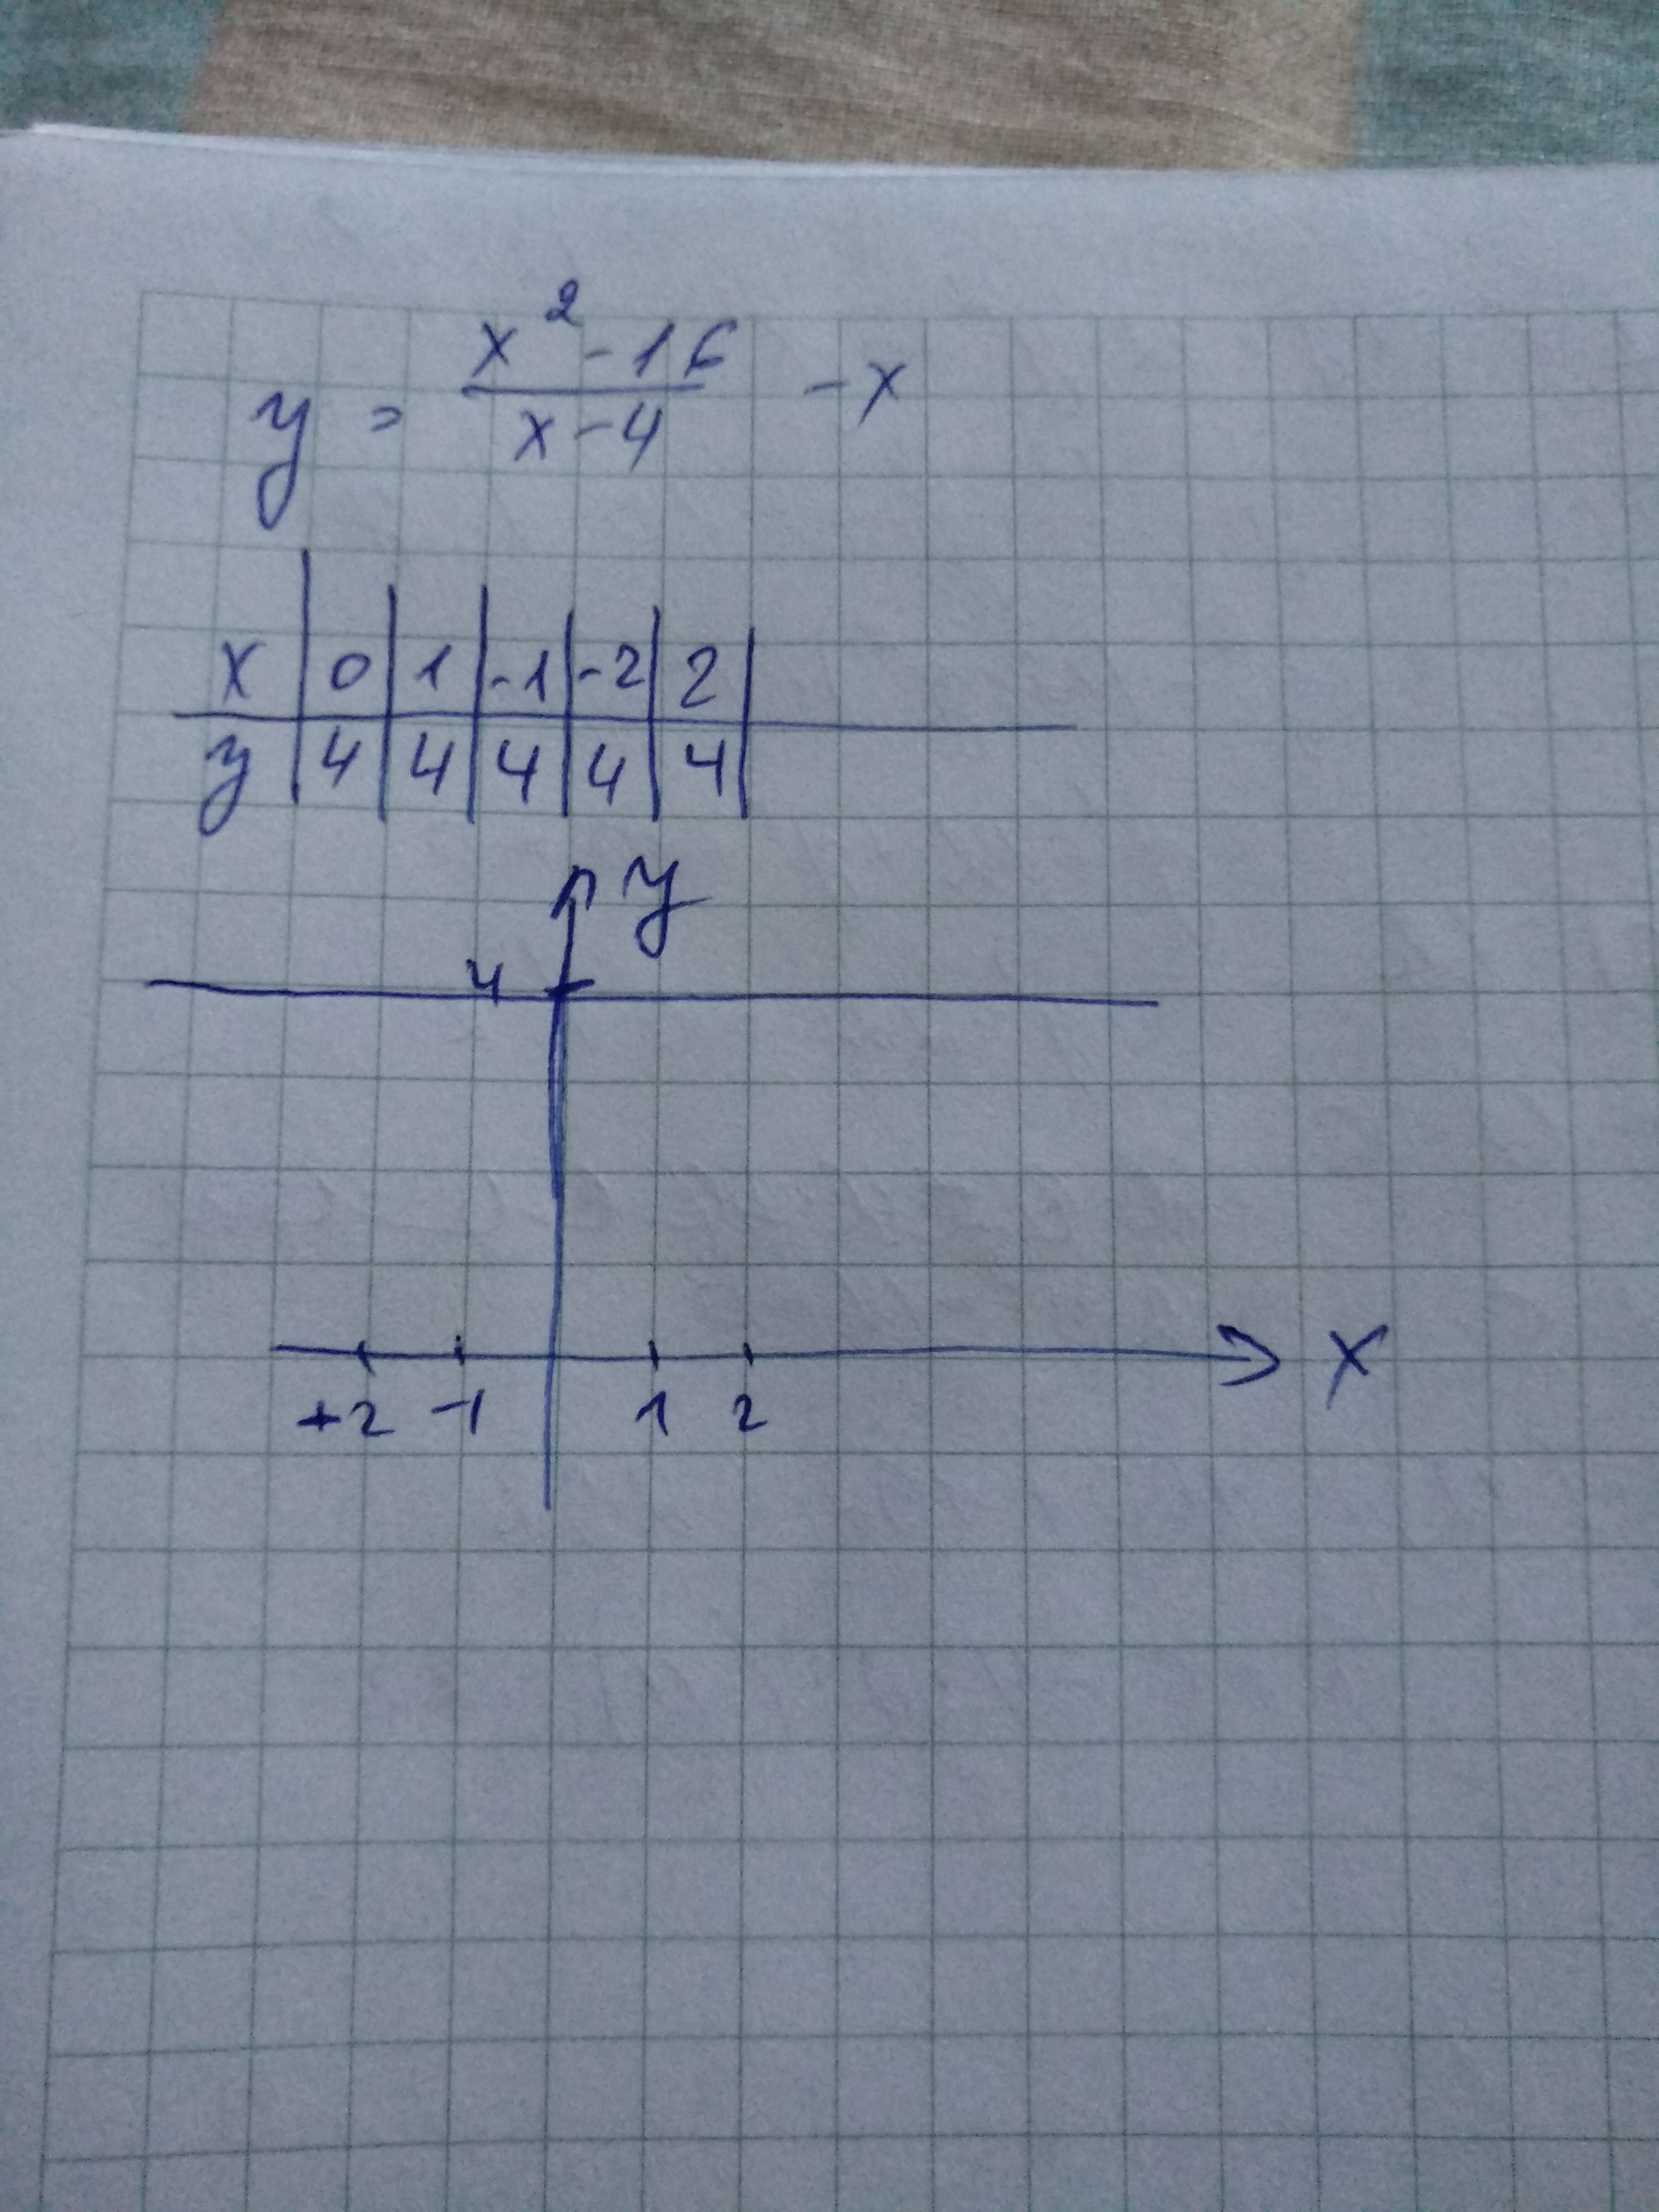 y = (x² - 16)/(x - 4) - x
x | 0 | 1 | -1 | -2 | 2 |
y | 4 | 4 | 4 | 4 | 4 |
y
4
x
+2 -1 1 2